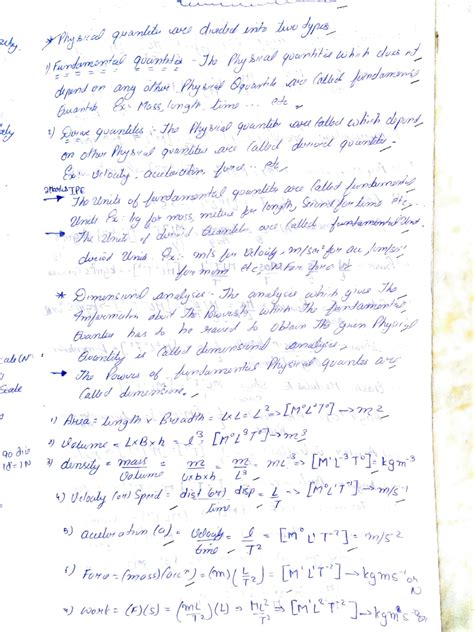 * Physical quantities are divided into two types
1) Fundamental quantities - The Physical quantities which does not
depend on any other Physical Quantite are Called fundamental
Quantite Ex: Mass, length, time ... etc
2) Derive quantities :- The Physical quantite are Called which depend
on other Physical quantities are Called derived quantite
Ex: Velocity, acceleration, force .. etc
2 Marks IPE
→ The Units of fundamental quantite are Called fundamental
Units Ex: kg for mass, metere for length, Second for time etc
→ The Unit of derived Quantites are Called fundamental Unit
derived Units Ex: m/s for Velocity, m/sec² for acc
for mom etc
* Dimensional analysis - The analysis which gives The
Information about The Powers to which The fundamental
Quantites has to be raised to Obtain The given Physical
Quantity is Called dimensional analysis
→ The Powers of fundamental Physical quantes are
Called dimensions.
1) Area = length × Breadth = L×L = L² → [M⁰L²T⁰] → m²
2) Volume = L×B×h = l³ [M⁰L³T⁰] → m³
3) density = mass/Volume = m/l×b×h = m/L³ = mL⁻³ → [M¹L⁻³T⁰] = kgm⁻³
4) Velocity (or) Speed = dist (or) disp/time = L/T → [M⁰L¹T⁻¹] → m/s⁻¹
5) acceleration (a) = Velocity/time = l/T² = [M⁰L¹T⁻²] = m/s²
6) Force = (mass)(acc) = (m)(L/T²) = [M¹L¹T⁻²] → kgms⁻² or N
7) Work = (F)(S) = (mL/T²)(L) = ML²/T² → [M¹L²T⁻²] → kgm²s⁻² or
cale (N
Scale
90 div
10 = 1N